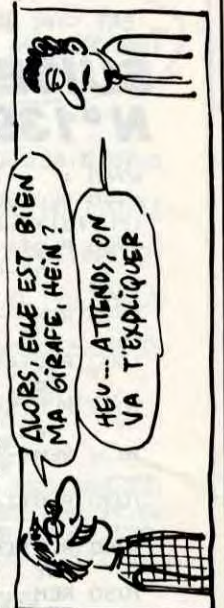 ALORS, ELLE EST BIEN
MA GIRAFE, HEIN ?
HEU... ATTENDS, ON
VA T'EXPLIQUER
N°13